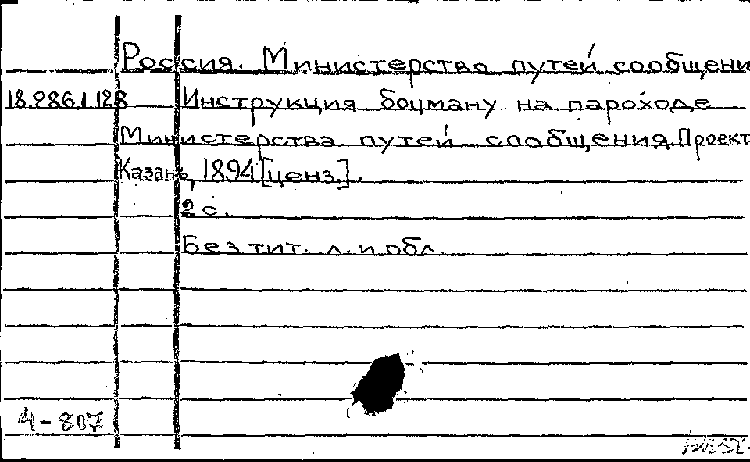 Россия. Министерство путей сообщени
18.286.1.128 Инструкция боцману на пароходе
Министерства путей сообщения. Проект
Казань, 1894 [ценз.].
2 с.
Без тит. л. и обл.
4-807